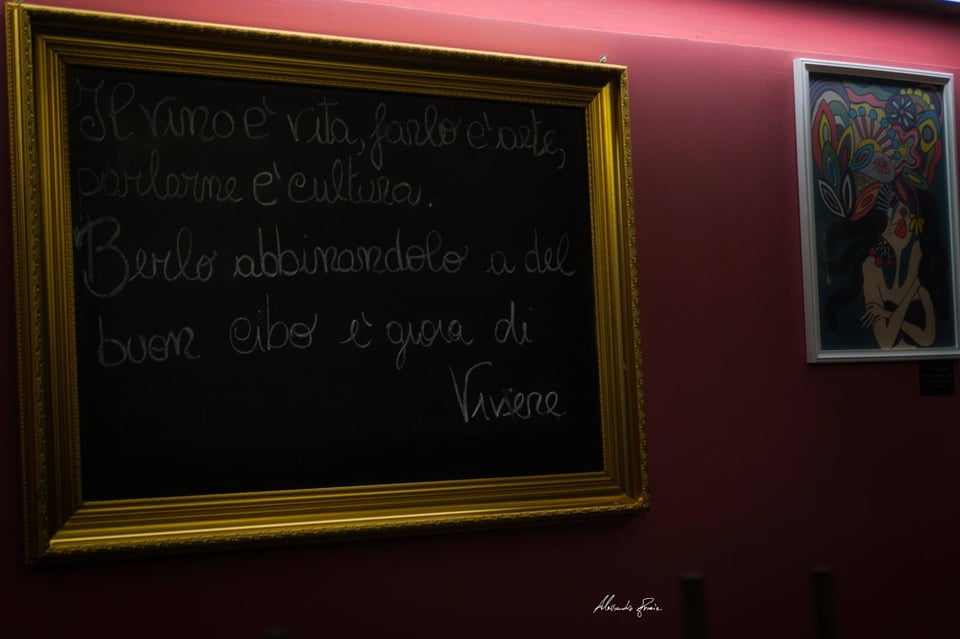 Il vino è vita, farlo è arte,
parlarne è cultura.
Berlo abbinandolo a del
buon cibo è gioia di
Vivere